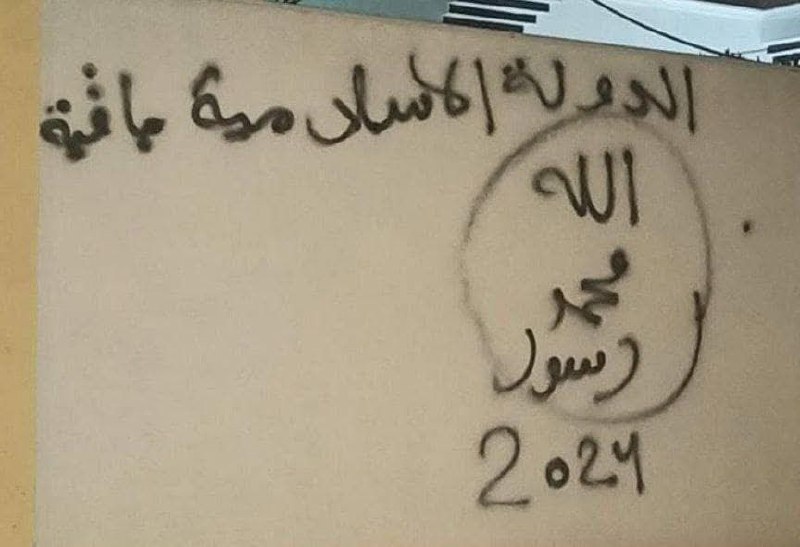 الدولة الاسلامية باقية
الله
محمد
رسول
2024